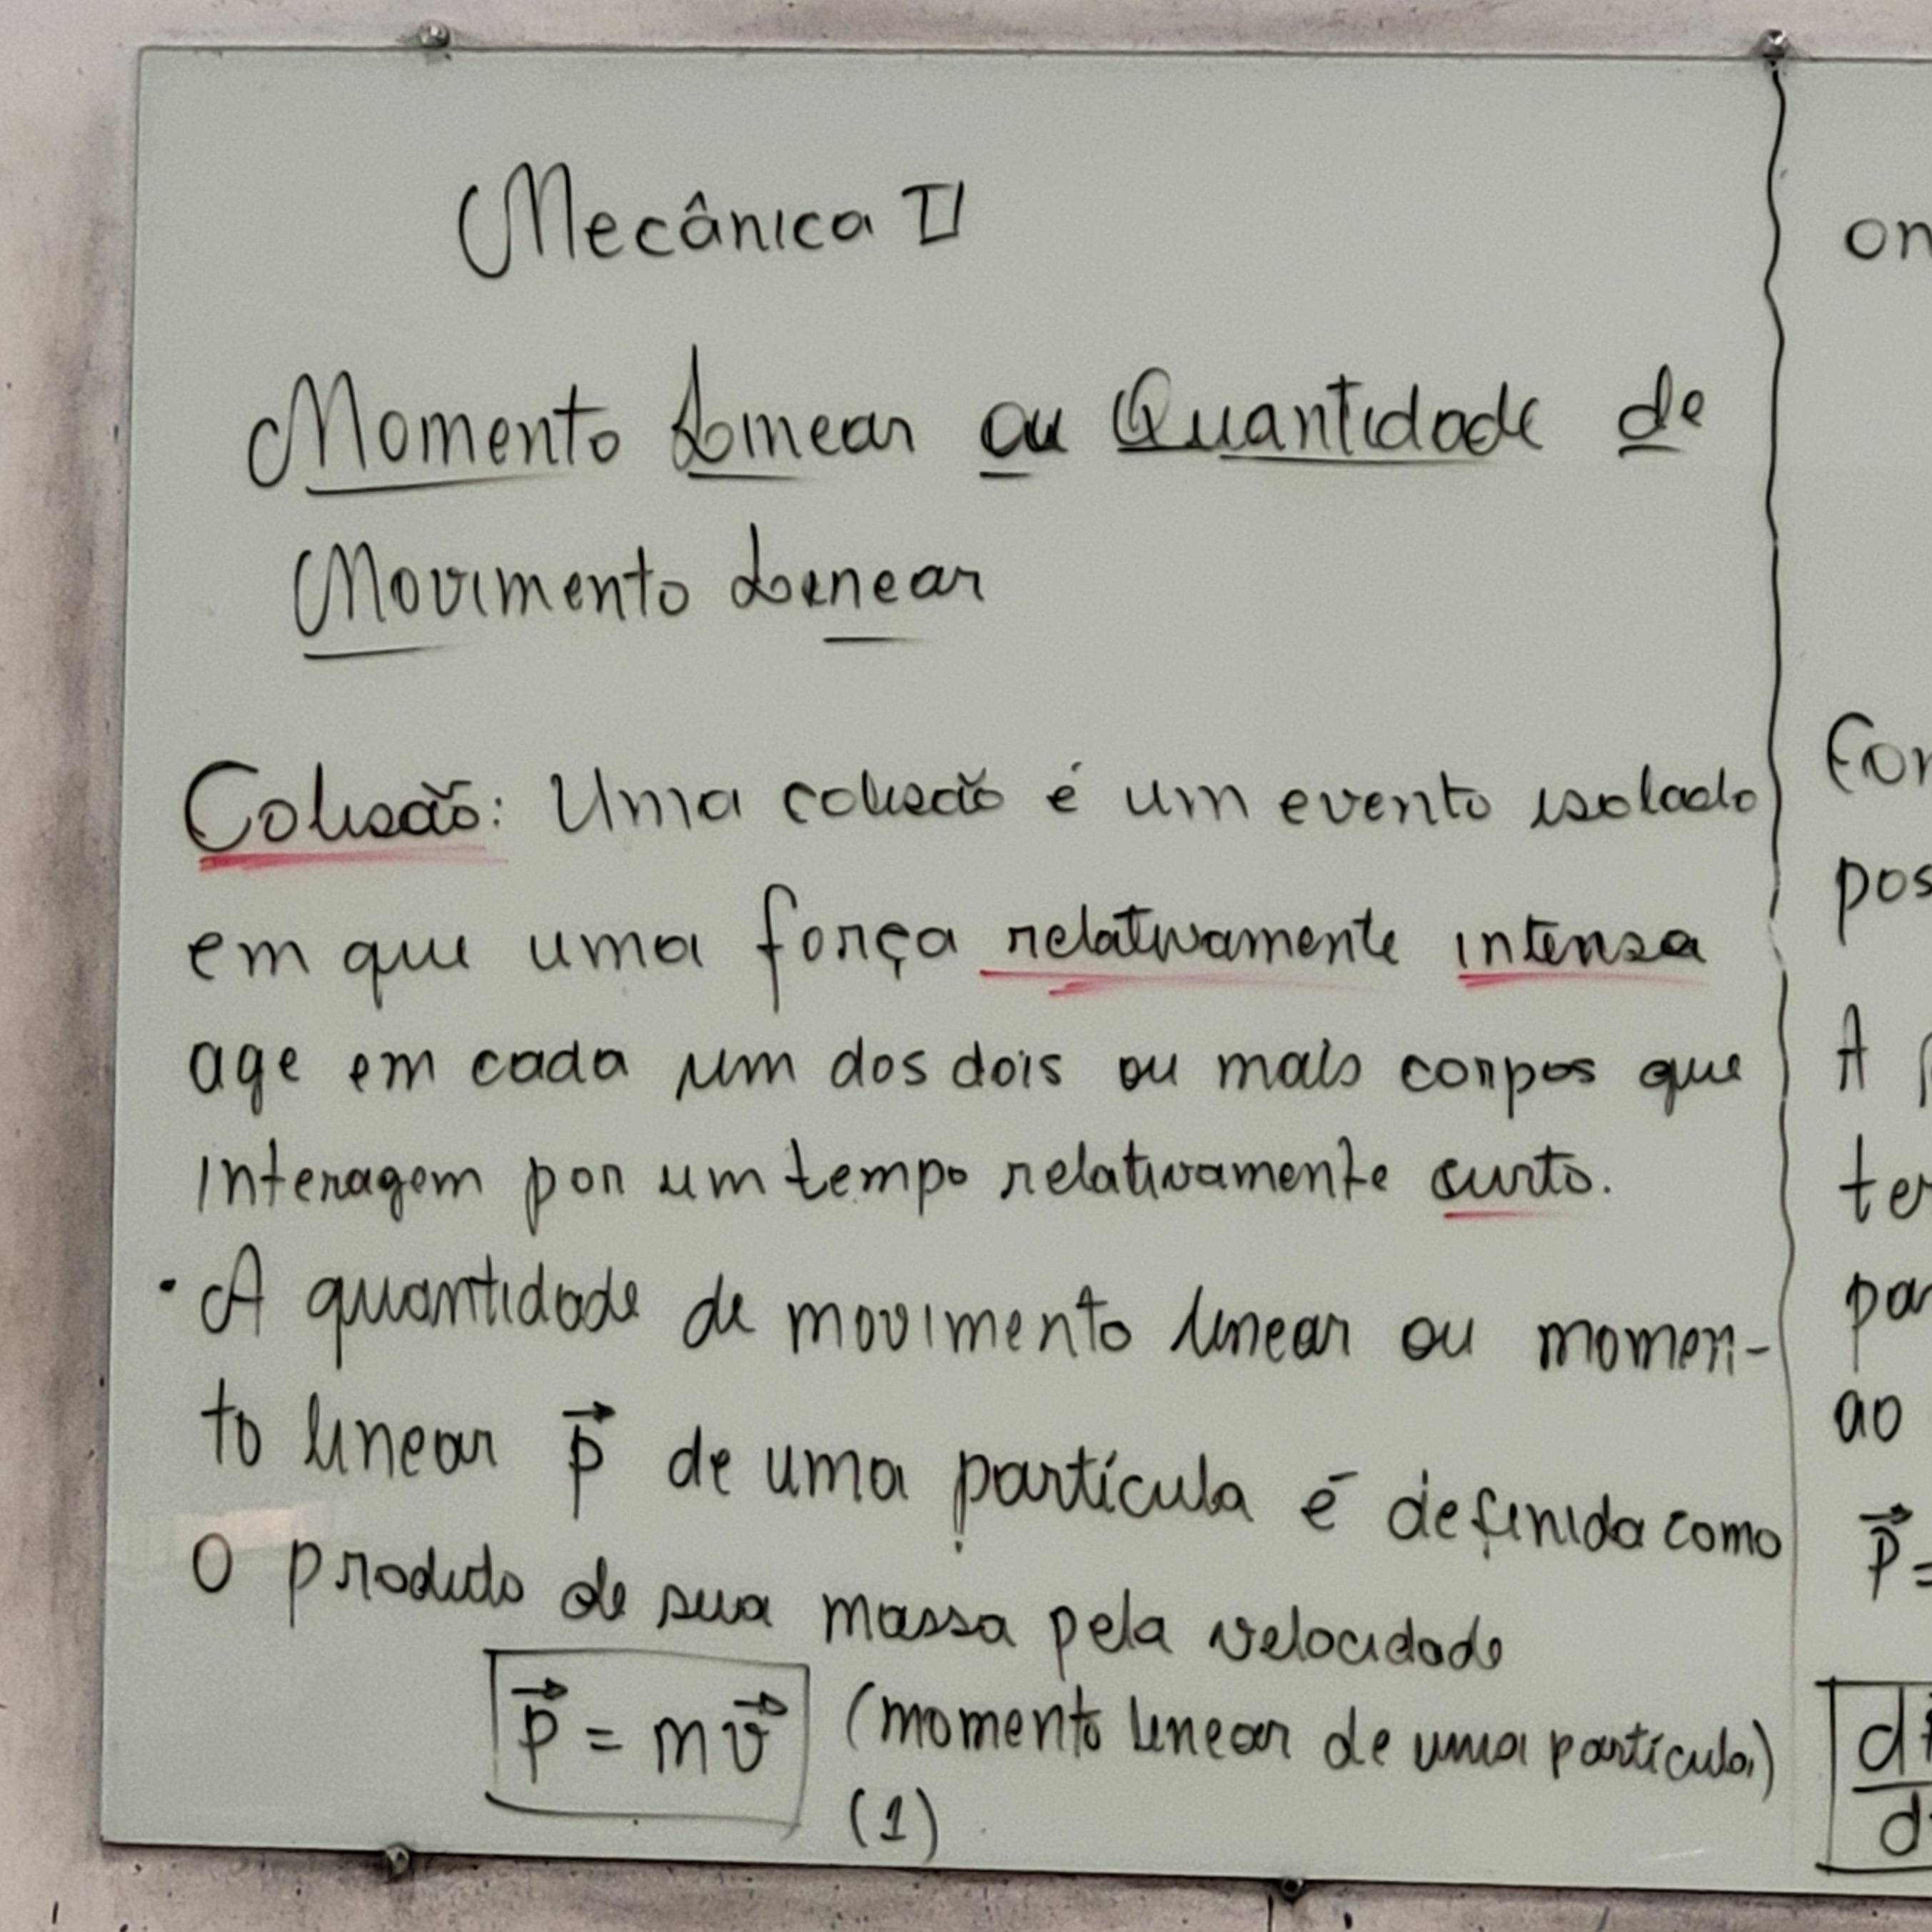 Mecânica II
Momento Linear ou Quantidade de
Movimento Linear
Colisão: Uma colisão é um evento isolado
em que uma força relativamente intensa
age em cada um dos dois ou mais corpos que
interagem por um tempo relativamente curto.
· A quantidade de movimento linear ou momen-
to linear p⃗ de uma partícula é definida como
o produto de sua massa pela velocidade
p⃗ = mv⃗ (momento linear de uma partícula)
(1)
on
pos
A
ter
par
ao
p⃗ =